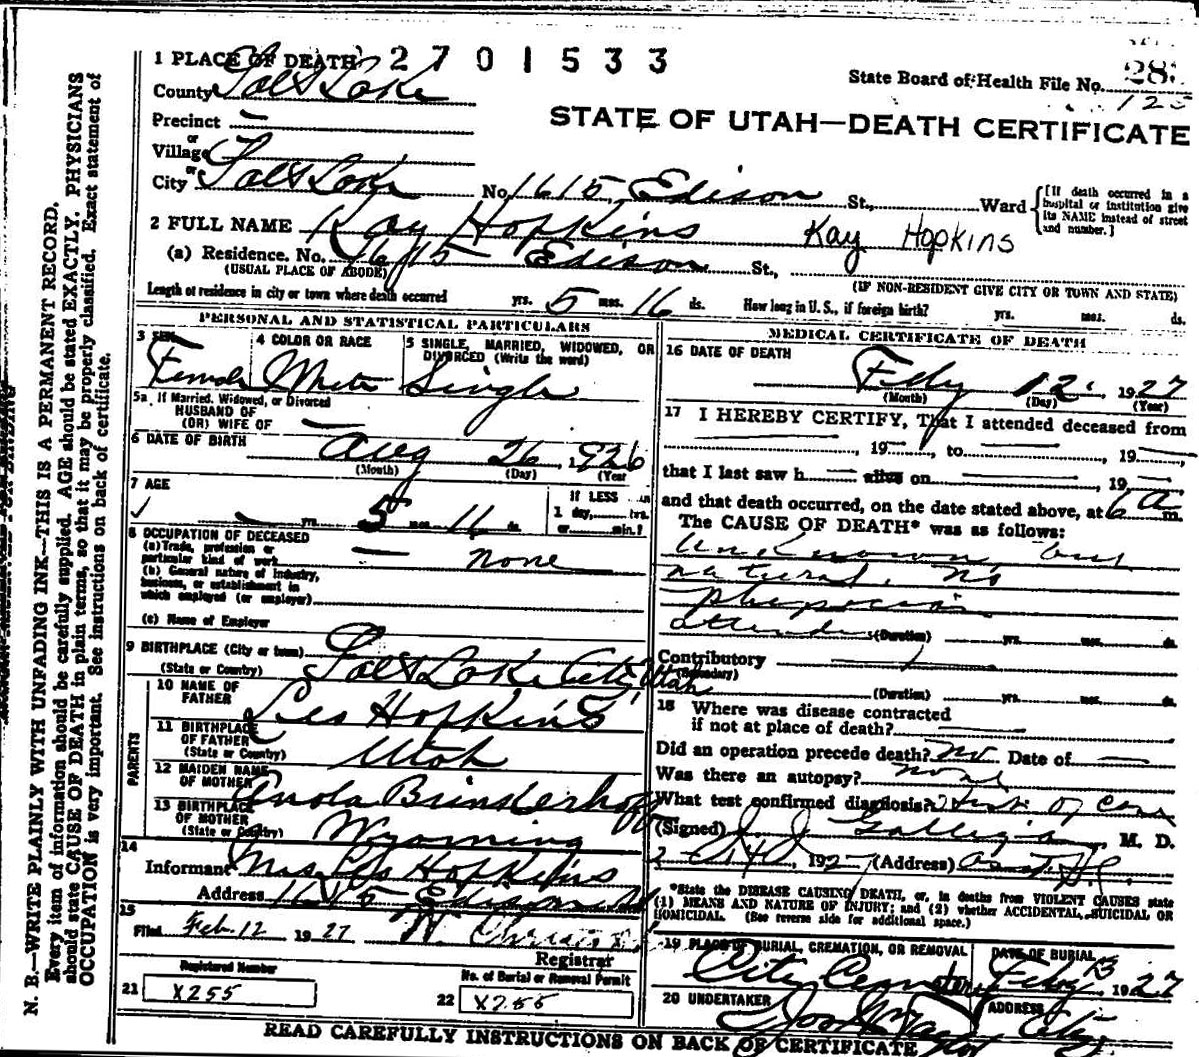 1 PLACE OF DEATH 2701533
State Board of Health File No. 28
County Salt Lake
125
STATE OF UTAH—DEATH CERTIFICATE
Precinct —
or
Village
or
City Salt Lake No. 1615 Edison St., Ward [If death occurred in a hospital or institution give its NAME instead of street and number.]
2 FULL NAME Kay Hopkins Kay Hopkins
(a) Residence. No. 1615 Edison St.,
(USUAL PLACE OF ABODE) (IF NON-RESIDENT GIVE CITY OR TOWN AND STATE)
Length of residence in city or town where death occurred yrs. 5 mos. 16 ds. How long in U. S., if foreign birth? yrs. mos. ds.
PERSONAL AND STATISTICAL PARTICULARS
3 SEX Female
4 COLOR OR RACE White
5 SINGLE, MARRIED, WIDOWED, OR DIVORCED (Write the word) Single
5a If Married, Widowed, or Divorced
HUSBAND OF
(OR) WIFE OF —
6 DATE OF BIRTH Aug 26 1926
(Month) (Day) (Year
7 AGE — yrs. 5 mos. ds.
If LESS
1 day, hrs.
or min.?
8 OCCUPATION OF DECEASED
(a) Trade, profession or
particular kind of work — none
(b) General nature of industry,
business, or establishment in
which employed (or employer)
(c) Name of Employer
9 BIRTHPLACE (City or town)
(State or Country) Salt Lake City Utah
PARENTS
10 NAME OF
FATHER Les Hopkins
11 BIRTHPLACE
OF FATHER
(State or Country) Utah
12 MAIDEN NAME
OF MOTHER
13 BIRTHPLACE
OF MOTHER
(State or Country) Wyoming
14
Informant Mrs. Les Hopkins
Address 1615 Edison St
15
Filed Feb. 12 1927 W. Christ
Registrar
Registered Number
21 X255
No. of Burial or Removal Permit
22 X255
MEDICAL CERTIFICATE OF DEATH
16 DATE OF DEATH
Feby 12. 1927
(Month) (Day) (Year)
17 I HEREBY CERTIFY, That I attended deceased from
—, 19—, to —, 19—
that I last saw h— alive on —, 19—
and that death occurred, on the date stated above, at 6 a m.
The CAUSE OF DEATH* was as follows:
Unknown but
natural. No
physician
attend (Duration) yrs. mos. ds.
Contributory
(Secondary)
(Duration) yrs. mos. ds.
18 Where was disease contracted
if not at place of death? —
Did an operation precede death? no Date of —
Was there an autopsy?
What test confirmed diagnosis? Hist. of case
(Signed) J. J. Galligan, M. D.
2, 1927 (Address)
*State the DISEASE CAUSING DEATH, or, in deaths from VIOLENT CAUSES state
(1) MEANS AND NATURE OF INJURY; and (2) whether ACCIDENTAL, SUICIDAL OR
HOMICIDAL. (See reverse side for additional space.)
19 PLACE OF BURIAL, CREMATION, OR REMOVAL
City Cemetery
DATE OF BURIAL
Feby 13 1927
20 UNDERTAKER
Jos. Wm Taylor
ADDRESS
City
READ CAREFULLY INSTRUCTIONS ON BACK OF CERTIFICATE
N. B.—WRITE PLAINLY WITH UNFADING INK—THIS IS A PERMANENT RECORD.
Every item of information should be carefully supplied. AGE should be stated EXACTLY. PHYSICIANS
should state CAUSE OF DEATH in plain terms, so that it may be properly classified. Exact statement of
OCCUPATION is very important. See instructions on back of certificate.